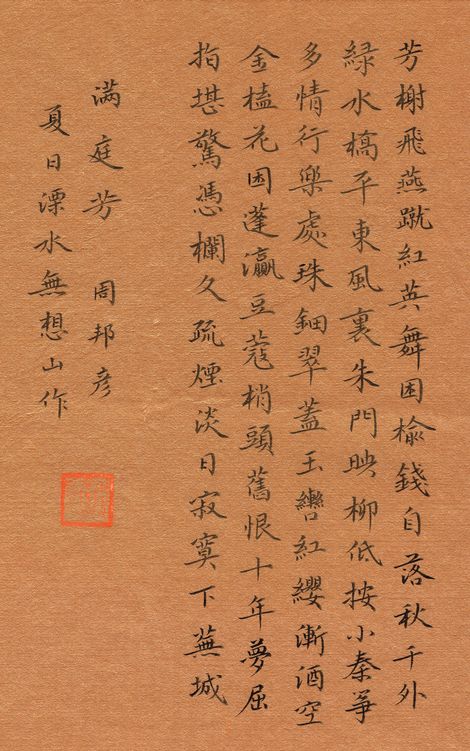 芳榭飛燕蹴紅英舞困榆錢自落秋千外
緑水橋平東風裏朱門映柳低按小秦箏
多情行樂處珠鈿翠蓋玉轡紅纓漸酒空
金榼花困蓬瀛豆蔻梢頭舊恨十年夢屈
指堪驚憑欄久疏煙淡日寂寞下蕪城
满庭芳 周邦彦
夏日溧水無想山作